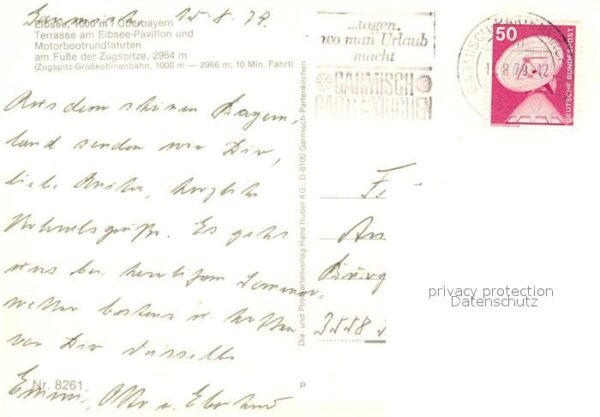 Garmisch 15.8.79
Eibsee, 1000 m / Oberbayern
Terrasse am Eibsee-Pavillon und
Motorbootrundfahrten
am Fuße der Zugspitze, 2964 m
(Zugspitz-Großkabinenbahn, 1000 m — 2966 m; 10 Min. Fahrt)
Aus dem schönen Bayern,
land senden wir Dir,
liebe herzliche
Urlaubsgrüße. Es geht
uns bei herrlichem Sommer,
wetter bestens u. hoffen
von Dir dasselbe
Emmi, Otto u. Eberhard
Nr. 8261
Dia- und Postkartenverlag Hans Huber KG., D-8100 Garmisch-Partenkirchen
P
...tagen,
wo man Urlaub
macht
GARMISCH
PARTENKIRCHEN
GARMISCH-PARTENKIRCHEN
50
DEUTSCHE BUNDESPOST
F
An
3558
privacy protection
Datenschutz